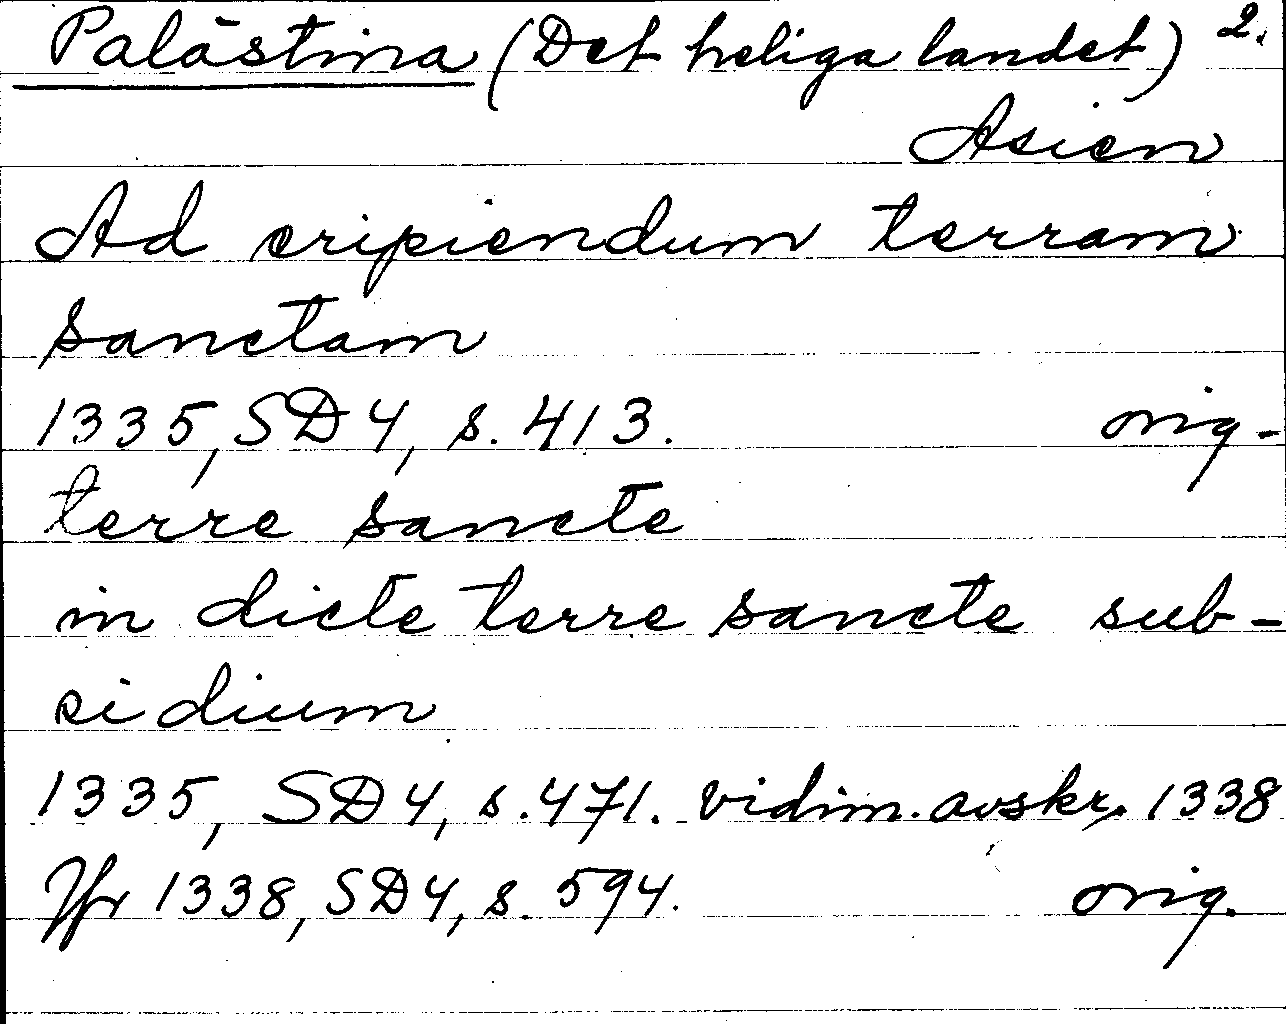 Palästina (Det heliga landet) 2.
Asien
Ad eripiendum terram
sanctam
1335, SD 4, s. 413. orig.
terre sancte
in dicte terre sancte sub-
sidium
1335, SD 4, s. 471. vidim. avskr. 1338
Jfr 1338, SD 4, s. 594. orig.